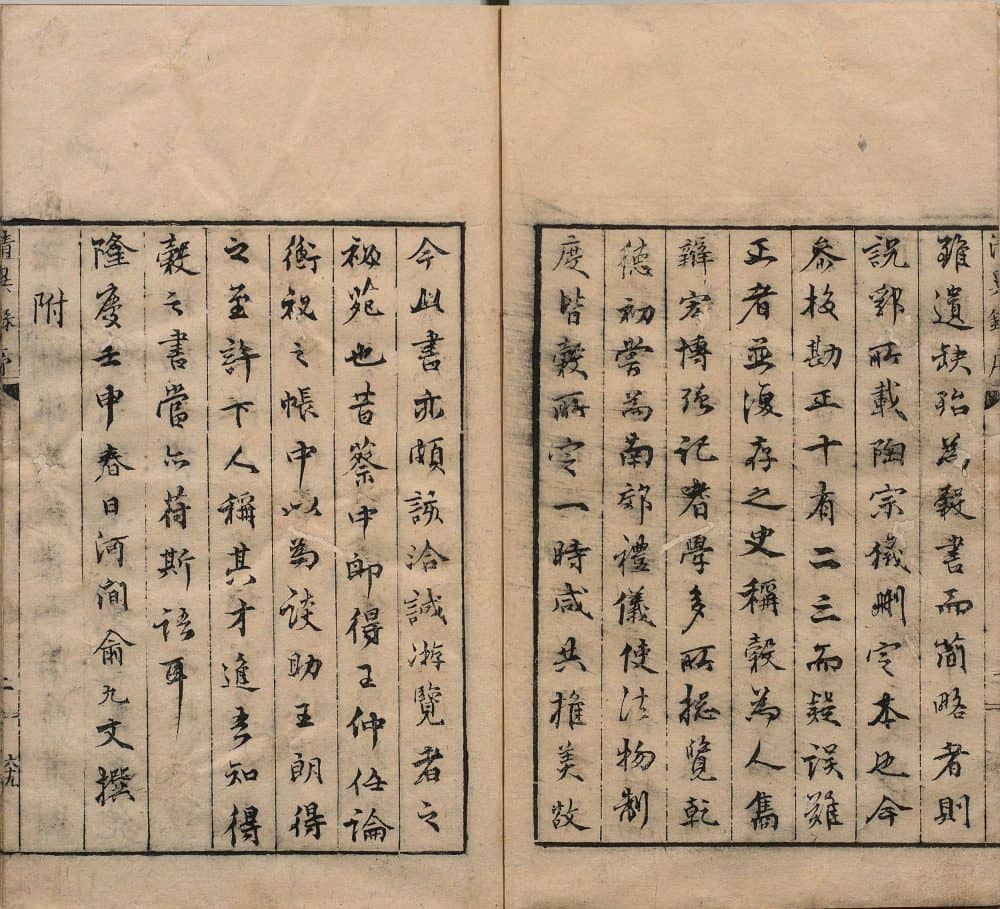 雖遺缺殆為穀書而簡略者則
說郛所載陶宗儀刪定本也今
叅校勘正十有二三而疑誤難
正者並復存之史稱穀為人雋
辯宏博強記嗜學多所揔覽乾
德初嘗為南郊禮儀使法物制
度皆穀所定一時咸共推美故
今此書亦頗該洽誠游覽者之
祕苑也昔蔡中郎得王仲任論
衡祝之帳中以為談助王朗得
之至許下人稱其才進吾知得
穀之書當亦符斯語耳
隆慶壬申春日河間俞允文撰
附
清異錄序
二
六九